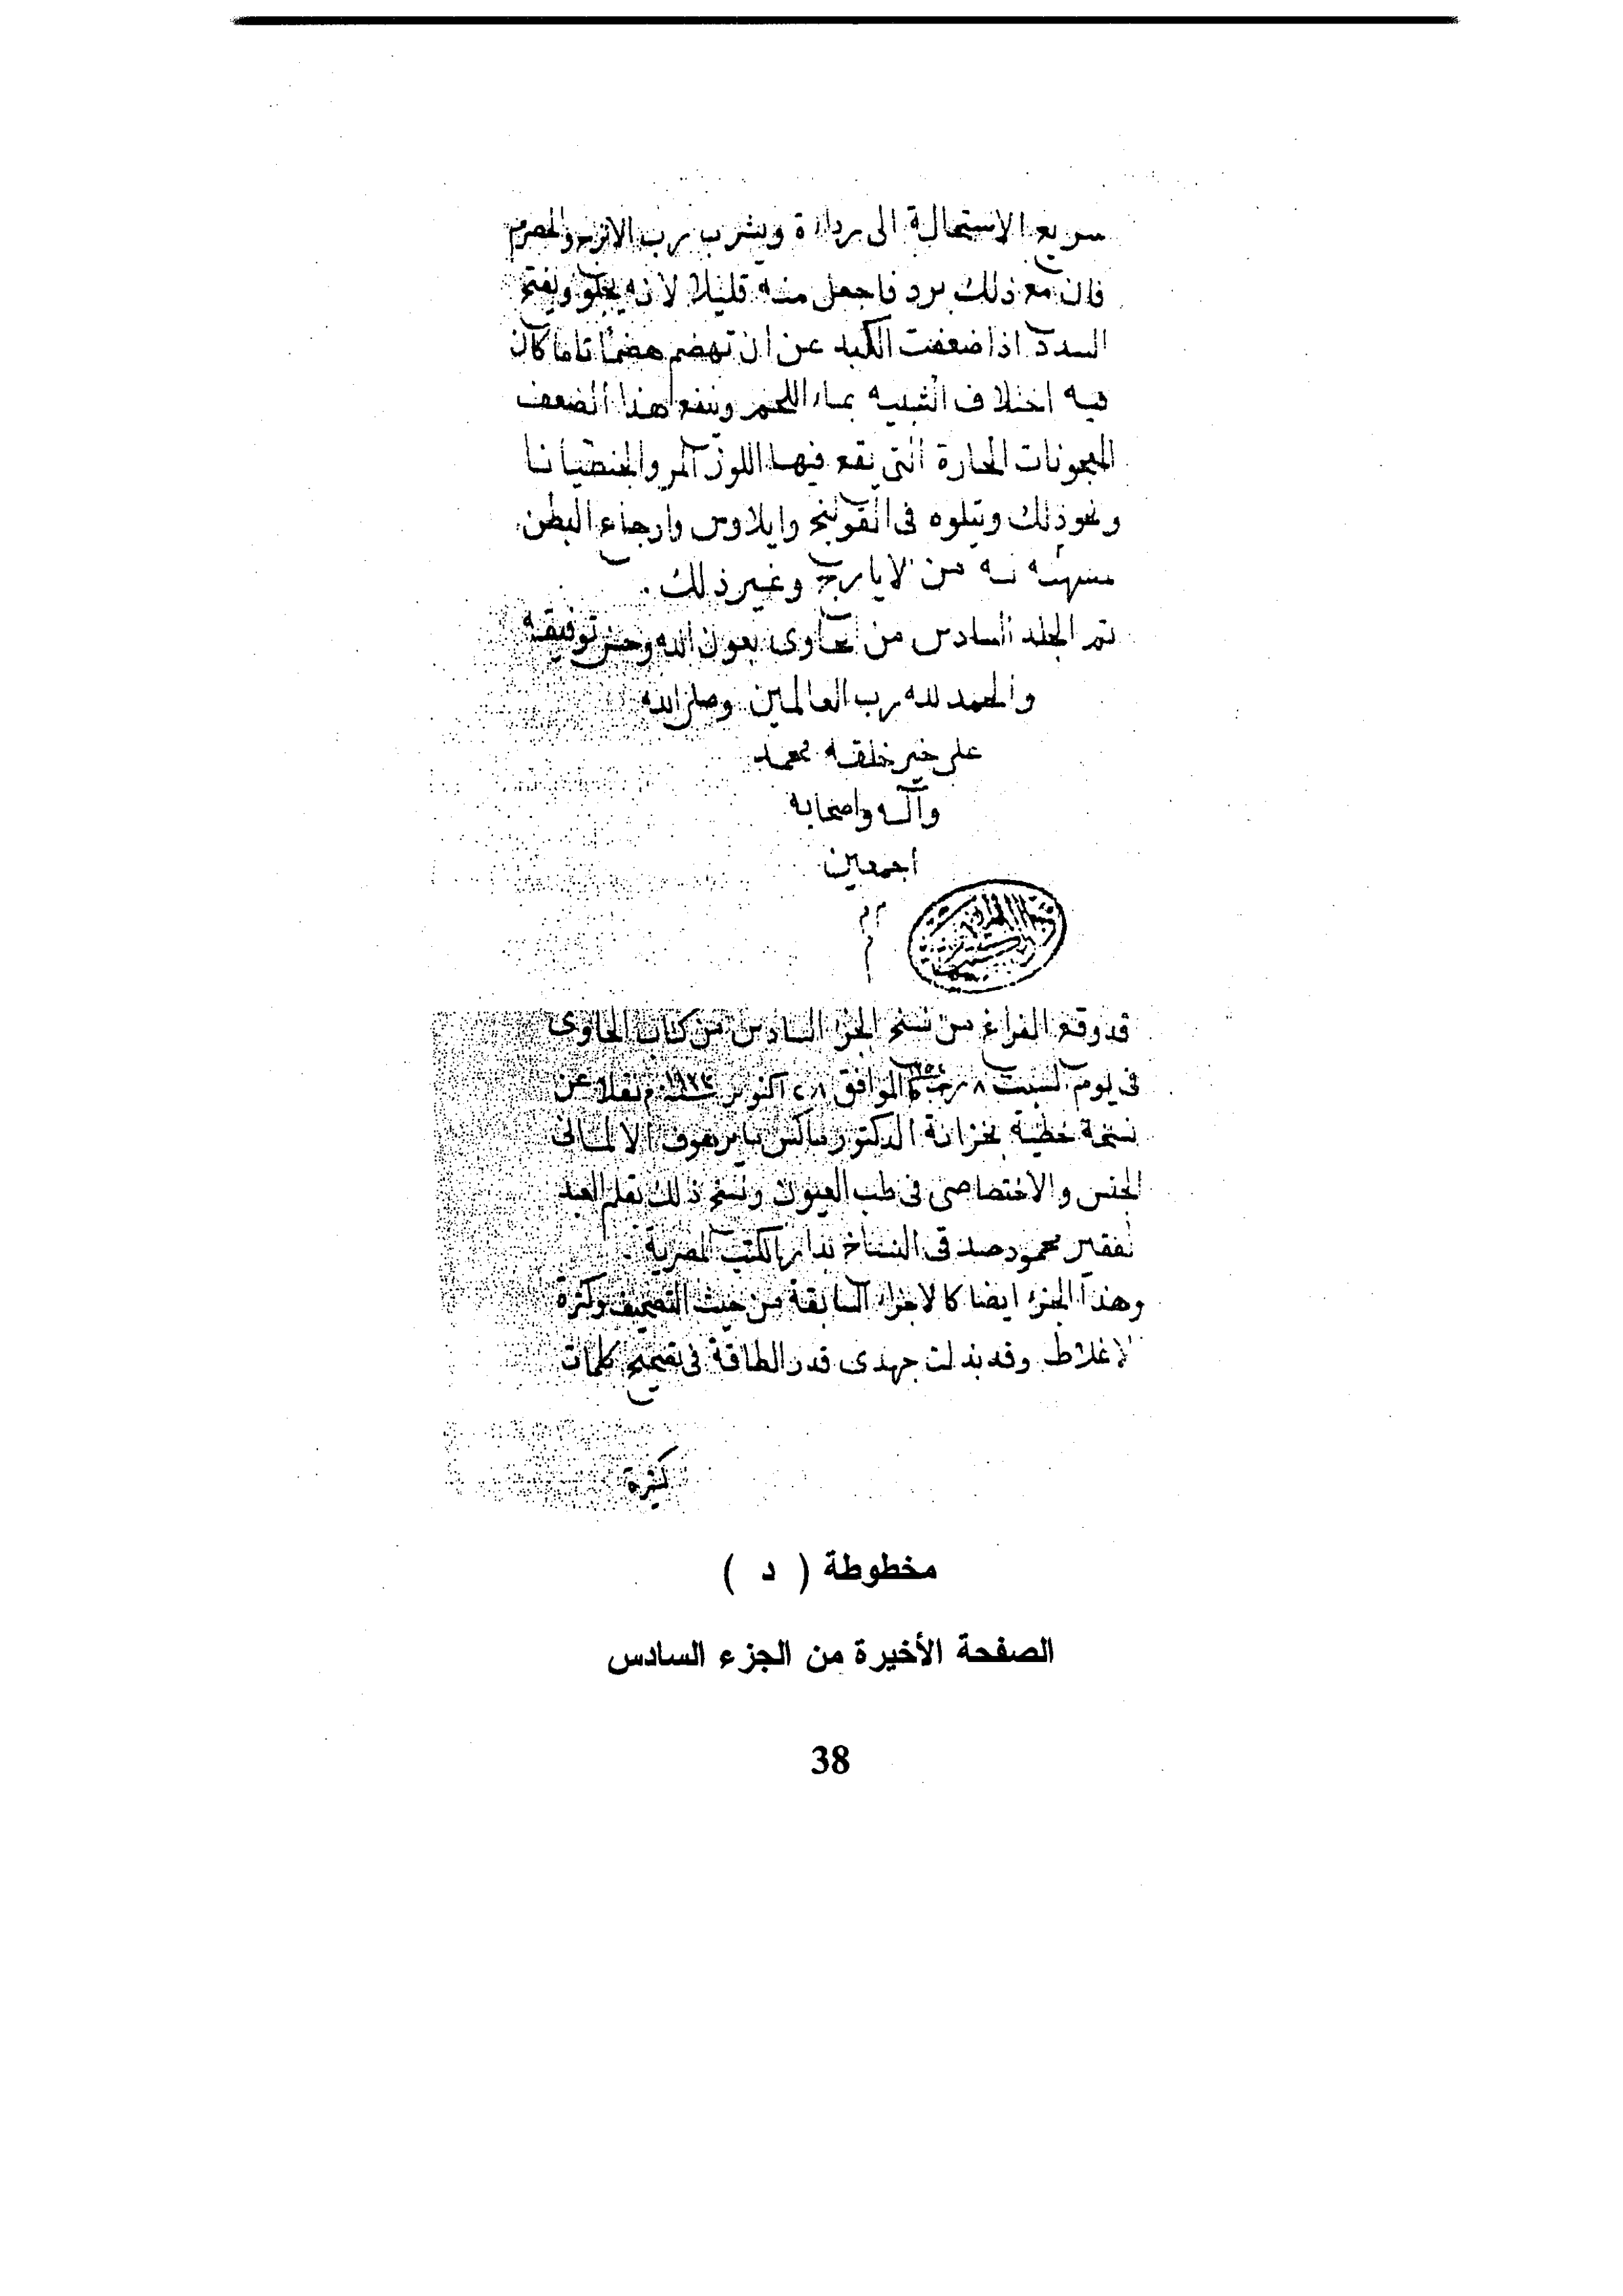 سريع الاستحالة الى رداءة ويشرب رب الاترج والحصرم
فان مع ذلك برد فاجعل منه قليلا لانه يجلو ويفتح
السدد اذا ضعفت الكبد عن ان تهضم هضما تاما كان
فيه اختلاف الشبيه بماء اللحم وينفع هذا الضعف
المعجونات الحارة التى يقع فيها اللوز المر والجنطيانا
ونحو ذلك ويتلوه فى القولنج وايلاوس واوجاع البطن
مسهلة من الايارج وغير ذلك .
تم الجلد السادس من الحاوى بعون الله وحسن توفيقه
والحمد لله رب العالمين وصلى الله
على خير خلقه محمد
وآله واصحابه
اجمعين
قد وقع الفراغ من نسخ الجزء السادس من كتاب الحاوى
فى يوم السبت ٨ رجب الموافق ٢٨ اكتوبر سنة ١٩٣٣ م نقلا عن
نسخة خطية بخزانة الدكتور ماكس مايرهوف الالمانى
الجنس والاختصاصى فى طب العيون ونسخ ذلك بقلم العبد
الفقير محمود صدقى النساخ بدار الكتب المصرية .
وهذا الجزء ايضا كالاجزاء السابقة من حيث التصحيف وكثرة
الاغلاط وقد بذلت جهدى قدر الطاقة فى تصحيح كلمات
كثيرة
مخطوطة ( د )
الصفحة الأخيرة من الجزء السادس
38